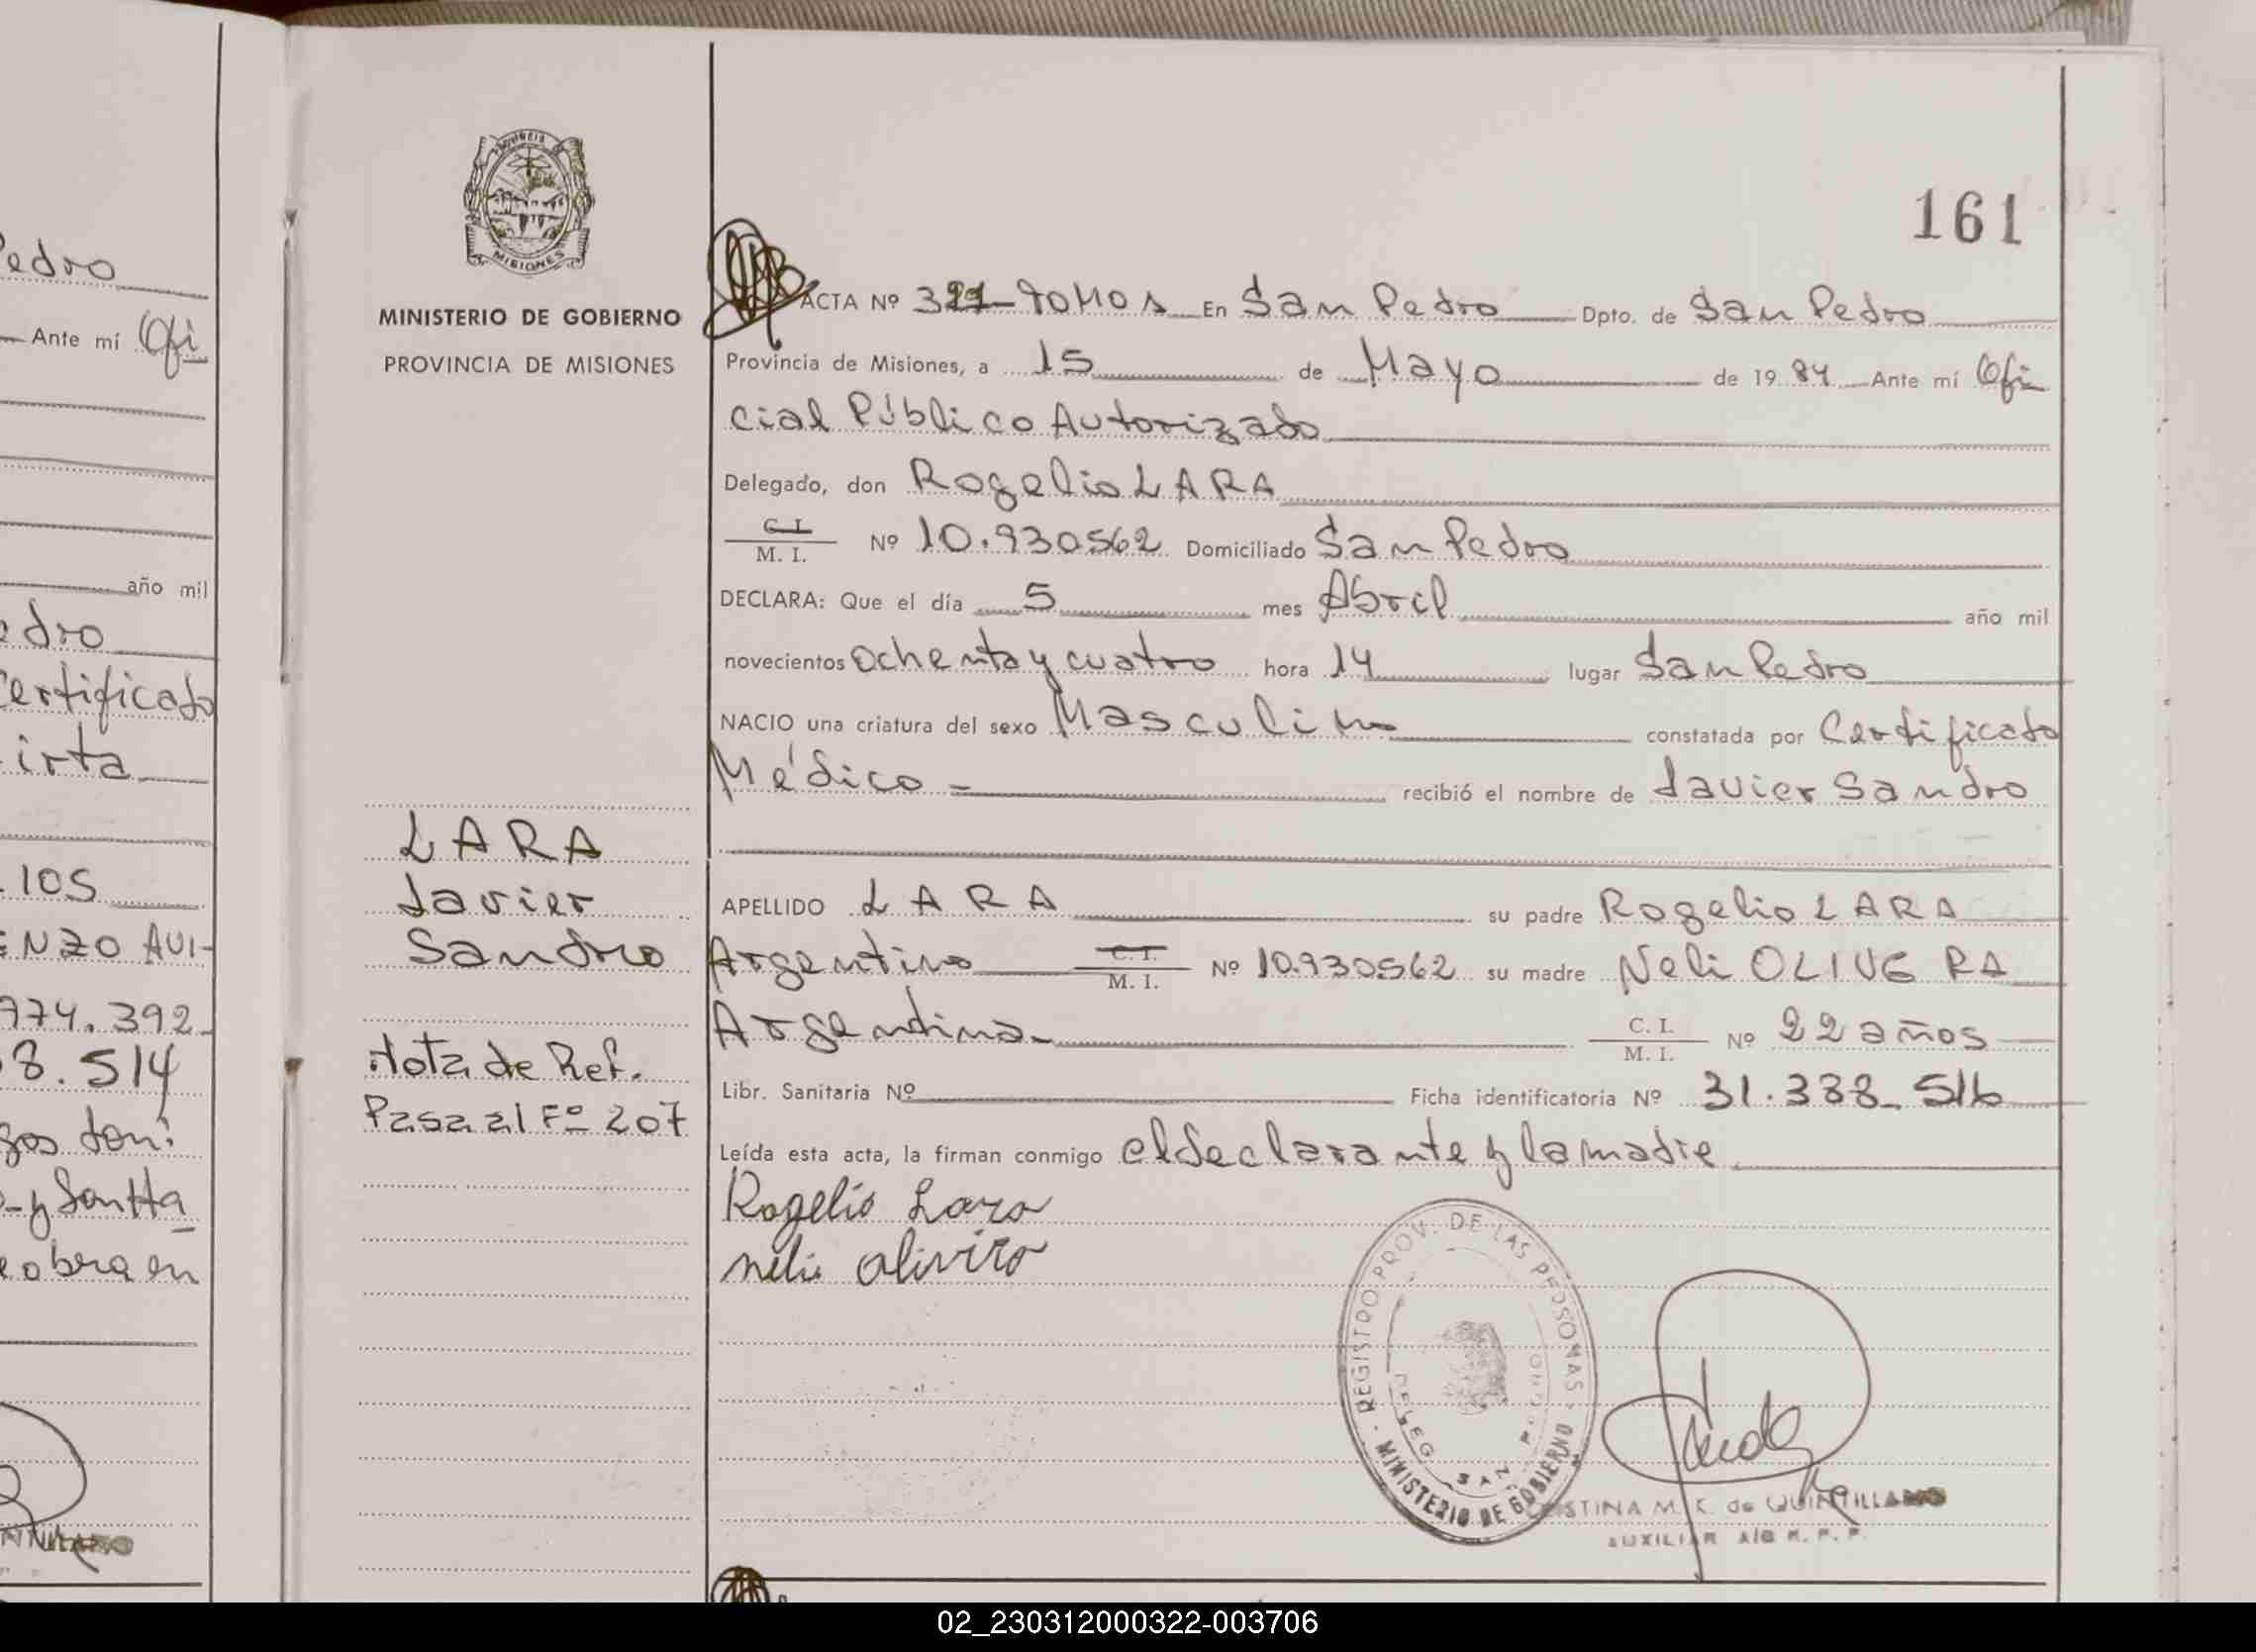 edro
Ante mí Ofi
año mil
edro
ertificado
irta
105
ENZO AVI-
974.392
8.514
gos doni
y Sontta
obra en
PROVINCIA
MISIONES
MINISTERIO DE GOBIERNO
PROVINCIA DE MISIONES
LARA
Javier
Sandro
Nota de Ref.
Pasa al Fº 207
161
ACTA Nº En San Pedro Dpto. de San Pedro
Provincia de Misiones, a 15 de Mayo de 1984 Ante mí Ofi
cial Público Autorizado
Delegado, don Rogelio LARA
C. I.
M. I. Nº 10.930562 Domiciliado San Pedro
DECLARA: Que el día 5 mes Abril año mil
novecientos ochenta y cuatro hora 14 lugar San Pedro
NACIO una criatura del sexo Masculino constatada por Certificado
Médico - recibió el nombre de Javier Sandro
APELLIDO LARA su padre Rogelio LARA
Argentino C. I. M. I. Nº 10.930562 su madre Neli OLIVERA
Argentina C. I. M. I. Nº 22 años
Libr. Sanitaria Nº Ficha identificatoria Nº 31.338.516
Leída esta acta, la firman conmigo el declarante y la madre
Rogelio Lara
neli oliviro
REGISTRO PROV. DE LAS PERSONAS
DELEG. SAN PEDRO
MINISTERIO DE GOBIERNO
STINA M. K. de QUINTILLANO
AUXILIAR A/C R. P. P.
02_230312000322-003706